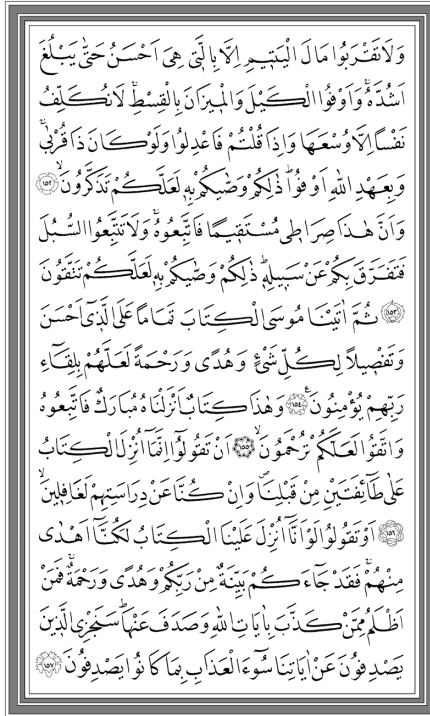 وَلَا تَقْرَبُوا مَالَ الْيَتِيمِ اِلَّا بِالَّتِى هِىَ اَحْسَنُ حَتّٰى يَبْلُغَ
اَشُدَّهُۚ وَاَوْفُوا الْكَيْلَ وَالْمِيزَانَ بِالْقِسْطِۚ لَا نُكَلِّفُ
نَفْسًا اِلَّا وُسْعَهَا وَاِذَا قُلْتُمْ فَاعْدِلُوا وَلَوْ كَانَ ذَا قُرْبٰىۚ
وَبِعَهْدِ اللّٰهِ اَوْفُواۜ ذٰلِكُمْ وَصّٰيكُمْ بِهِ لَعَلَّكُمْ تَذَكَّرُونَۙ ﴿١٥٢﴾
وَاَنَّ هٰذَا صِرَاطِى مُسْتَقِيمًا فَاتَّبِعُوهُۚ وَلَا تَتَّبِعُوا السُّبُلَ
فَتَفَرَّقَ بِكُمْ عَنْ سَبِيلِهِۜ ذٰلِكُمْ وَصّٰيكُمْ بِهِ لَعَلَّكُمْ تَتَّقُونَ
﴿١٥٣﴾ ثُمَّ اٰتَيْنَا مُوسَى الْكِتَابَ تَمَامًا عَلَى الَّذِٓى اَحْسَنَ
وَتَفْصِيلًا لِكُلِّ شَىْءٍ وَهُدًى وَرَحْمَةً لَعَلَّهُمْ بِلِقَٓاءِ
رَبِّهِمْ يُؤْمِنُونَ۟ ﴿١٥٤﴾ وَهٰذَا كِتَابٌ اَنْزَلْنَاهُ مُبَارَكٌ فَاتَّبِعُوهُ
وَاتَّقُوا لَعَلَّكُمْ تُرْحَمُونَۙ ﴿١٥٥﴾ اَنْ تَقُولُٓوا اِنَّمَٓا اُنْزِلَ الْكِتَابُ
عَلٰى طَٓائِفَتَيْنِ مِنْ قَبْلِنَاۖ وَاِنْ كُنَّا عَنْ دِرَاسَتِهِمْ لَغَافِلِينَۙ
﴿١٥٦﴾ اَوْ تَقُولُوا لَوْ اَنَّٓا اُنْزِلَ عَلَيْنَا الْكِتَابُ لَكُنَّٓا اَهْدٰى
مِنْهُمْۚ فَقَدْ جَٓاءَكُمْ بَيِّنَةٌ مِنْ رَبِّكُمْ وَهُدًى وَرَحْمَةٌۚ فَمَنْ
اَظْلَمُ مِمَّنْ كَذَّبَ بِاٰيَاتِ اللّٰهِ وَصَدَفَ عَنْهَاۜ سَنَجْزِى الَّذِينَ
يَصْدِفُونَ عَنْ اٰيَاتِنَا سُٓوءَ الْعَذَابِ بِمَا كَانُوا يَصْدِفُونَ ﴿١٥٧﴾